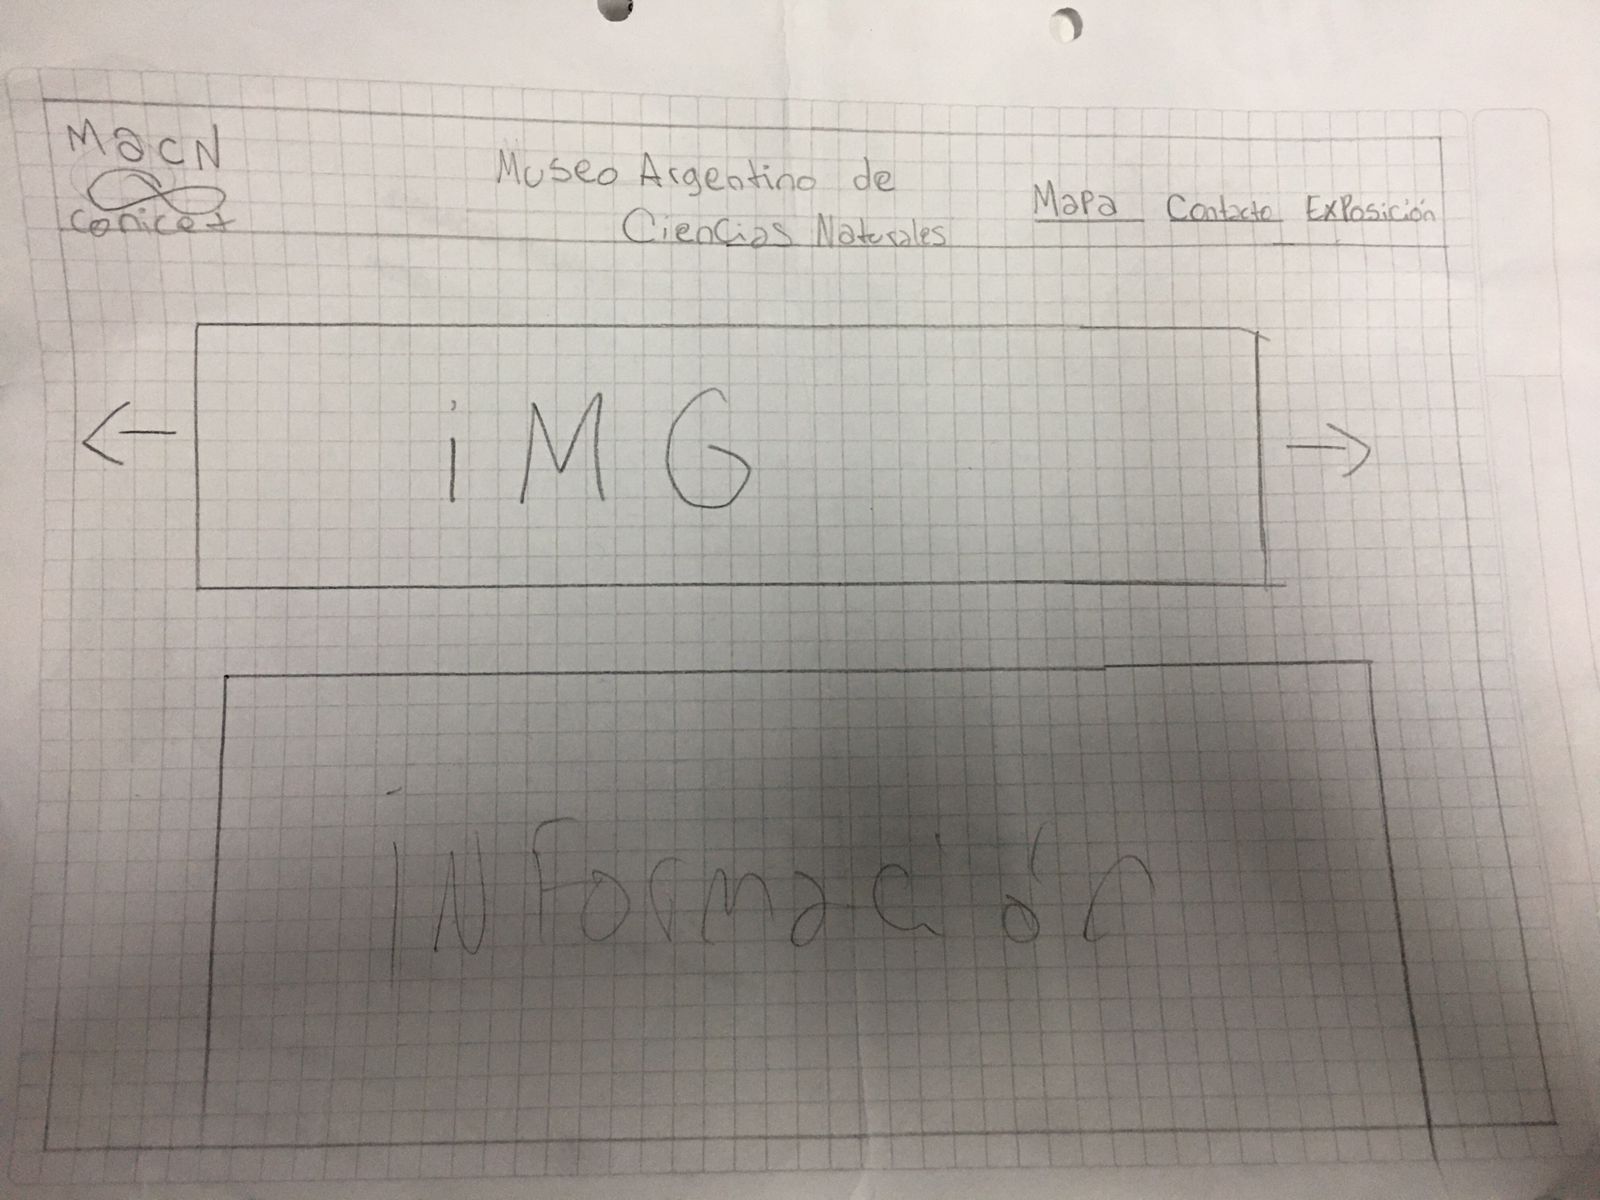 MacN
conicet
Museo Argentino de
Ciencias Naturales
Mapa Contacto ExPosición
iMG
iNFormación